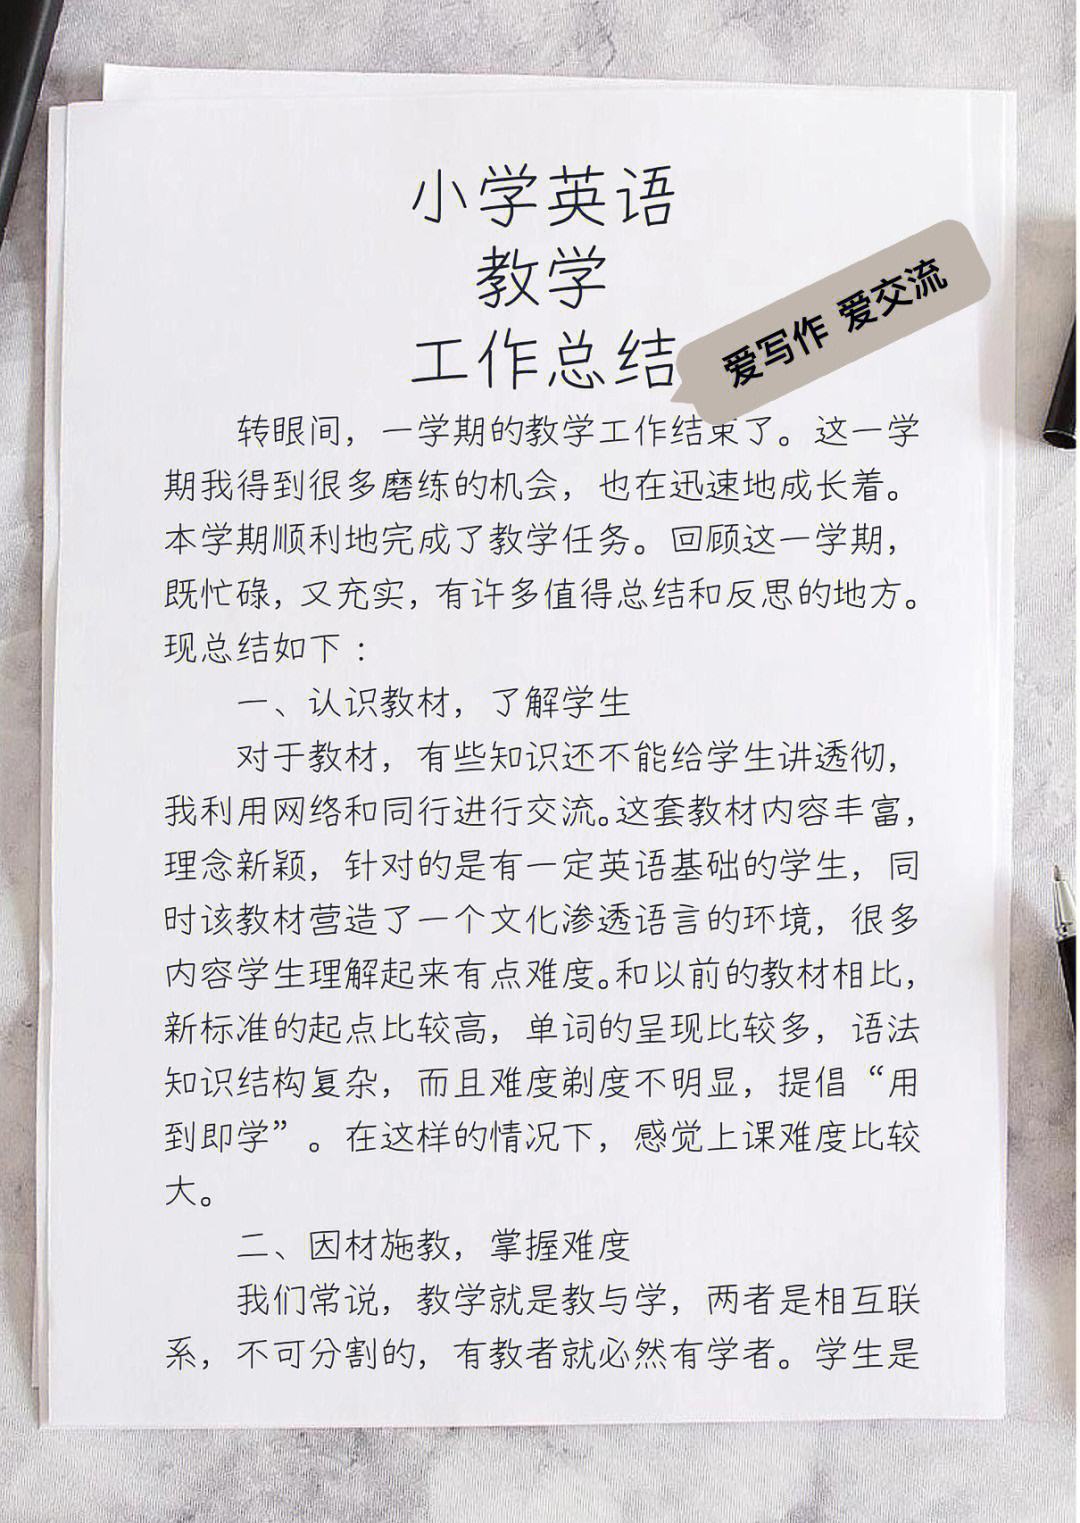 小学英语
教学
工作总结
爱写作 爱交流
转眼间，一学期的教学工作结束了。这一学
期我得到很多磨练的机会，也在迅速地成长着。
本学期顺利地完成了教学任务。回顾这一学期，
既忙碌，又充实，有许多值得总结和反思的地方。
现总结如下：
一、认识教材，了解学生
对于教材，有些知识还不能给学生讲透彻，
我利用网络和同行进行交流。这套教材内容丰富，
理念新颖，针对的是有一定英语基础的学生，同
时该教材营造了一个文化渗透语言的环境，很多
内容学生理解起来有点难度。和以前的教材相比，
新标准的起点比较高，单词的呈现比较多，语法
知识结构复杂，而且难度剃度不明显，提倡“用
到即学”。在这样的情况下，感觉上课难度比较
大。
二、因材施教，掌握难度
我们常说，教学就是教与学，两者是相互联
系，不可分割的，有教者就必然有学者。学生是